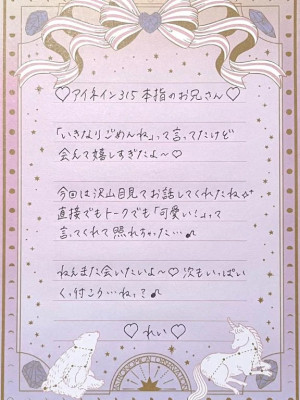 ♡アイネイン315本指のお兄さん♡
「いきなりごめんね」って言ってたけど
会えて嬉しすぎたよ〜♡
今回は沢山目見てお話してくれたね☆
直接でもトークでも「可愛い!」って
言ってくれて照れちゃった…♪
ねえまた会いたいよ〜♡次もいっぱい
くっ付こう…ねっ?♪
♡れい♡